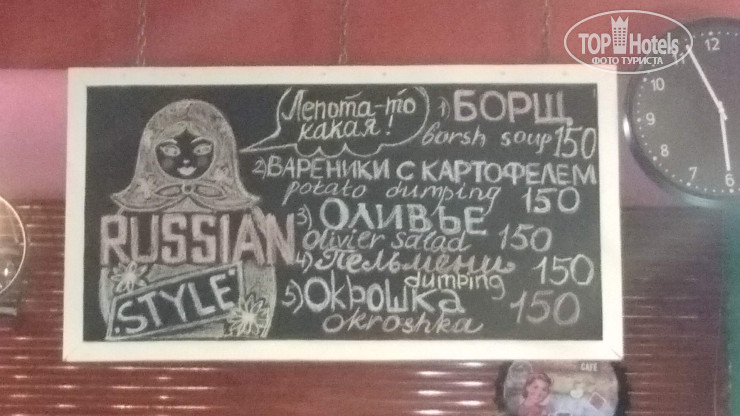 TOP Hotels
ФОТО ТУРИСТА
12
10
9
8
7
6
Лепота-то
какая!
RUSSIAN
STYLE
1) БОРЩ
borsh soup 150
2) ВАРЕНИКИ С КАРТОФЕЛЕМ
potato dumping 150
3) ОЛИВЬЕ
olivier salad 150
4) Пельмени 150
dumping
5) ОКРОШКА 150
okroshka
CAFE